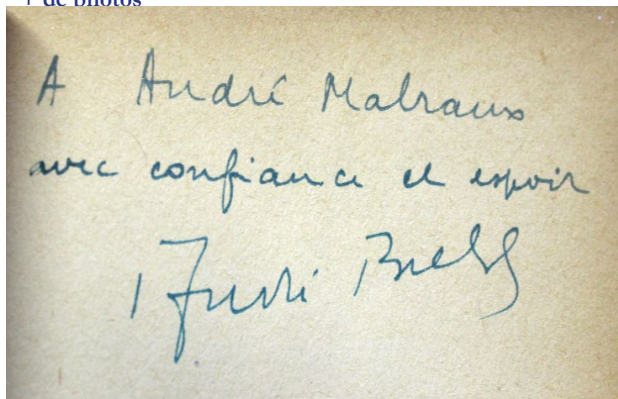 + de photos
A André Malraux
avec confiance et espoir
André